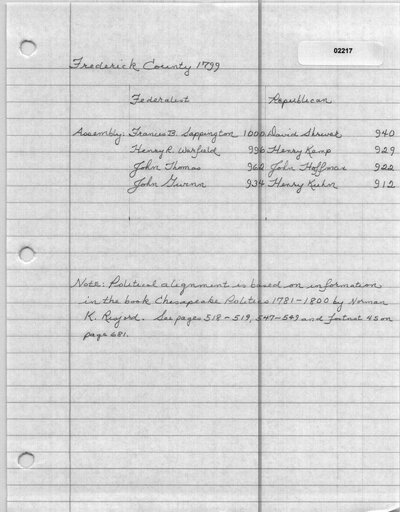 02217
Frederick County 1799
Federalist Republican
Assembly: Francis B. Sappington 1000 David Shriver 940
Henry R. Warfield 996 Henry Kemp 929
John Thomas 962 John Hoffman 922
John Gwinn 934 Henry Kuhn 912
Note: Political alignment is based on information
in the book Chesapeake Politics 1781-1800 by Norman
K. Risjord. See pages 518-519, 547-549 and footnote 45 on
page 681.